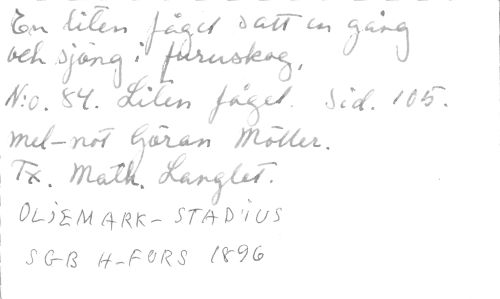 En liten fågel satt en gång
och sjöng i furuskog,
N:o. 84. Liten fågel. Sid. 105.
mel-not Göran Möller.
Tx. Math. Langlet.
OLJEMARK-STADIUS
SGB H-FORS 1896